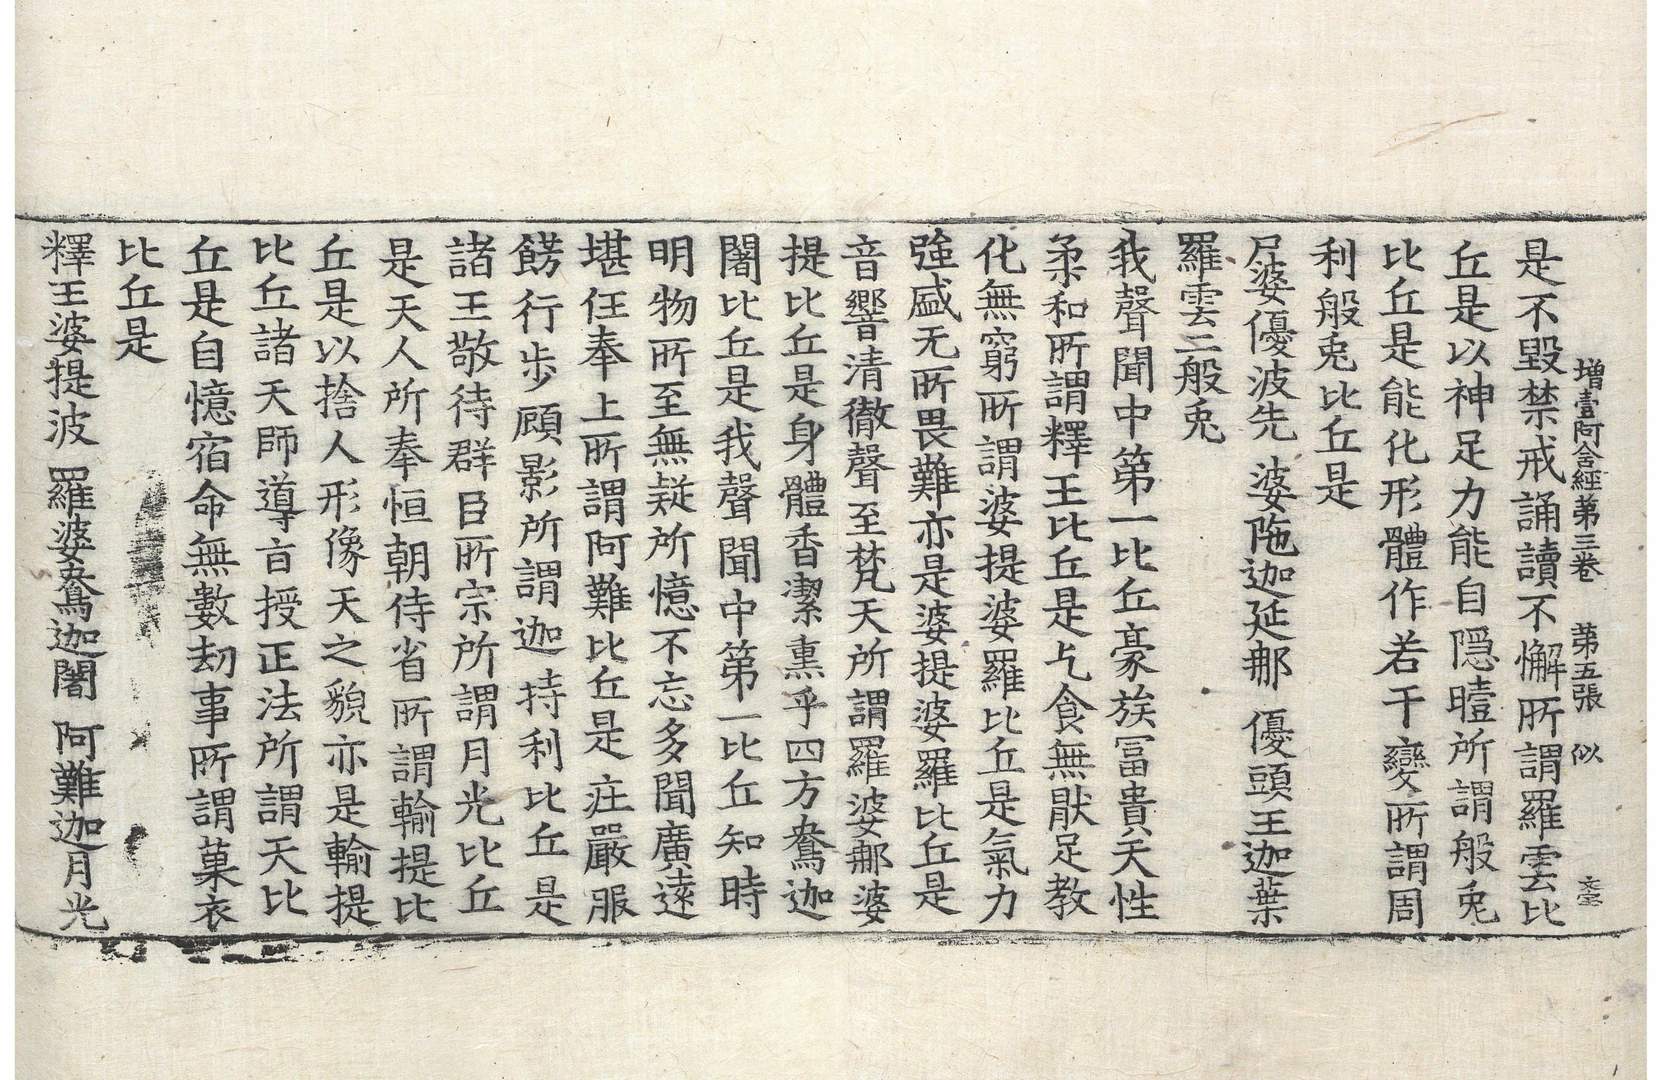 增壹阿含經第三卷 第五張 似
是不毀禁戒誦讀不懈所謂羅雲比
丘是以神足力能自隱曀所謂般兎
比丘是能化形體作若干變所謂周
利般兎比丘是
尸婆優波先 婆陁迦延那 優頭王迦葉
羅雲二般兎
我聲聞中第一比丘豪族冨貴天性
柔和所謂釋王比丘是乞食無猒足教
化無窮所謂婆提婆羅比丘是氣力
強盛无所畏難亦是婆提婆羅比丘是
音響清徹聲至梵天所謂羅婆那婆
提比丘是身體香潔熏乎四方鴦迦
闍比丘是我聲聞中第一比丘知時
明物所至無疑所憶不忘多聞廣遠
堪任奉上所謂阿難比丘是庄嚴服
餝行步顧影所謂迦持利比丘是
諸王敬待群臣所宗所謂月光比丘
是天人所奉恒朝侍省所謂輸提比
丘是以捨人形像天之貌亦是輸提
比丘諸天師導旨授正法所謂天比
丘是自憶宿命無數劫事所謂菓衣
比丘是
釋王婆提波 羅婆鴦迦闍 阿難迦月光